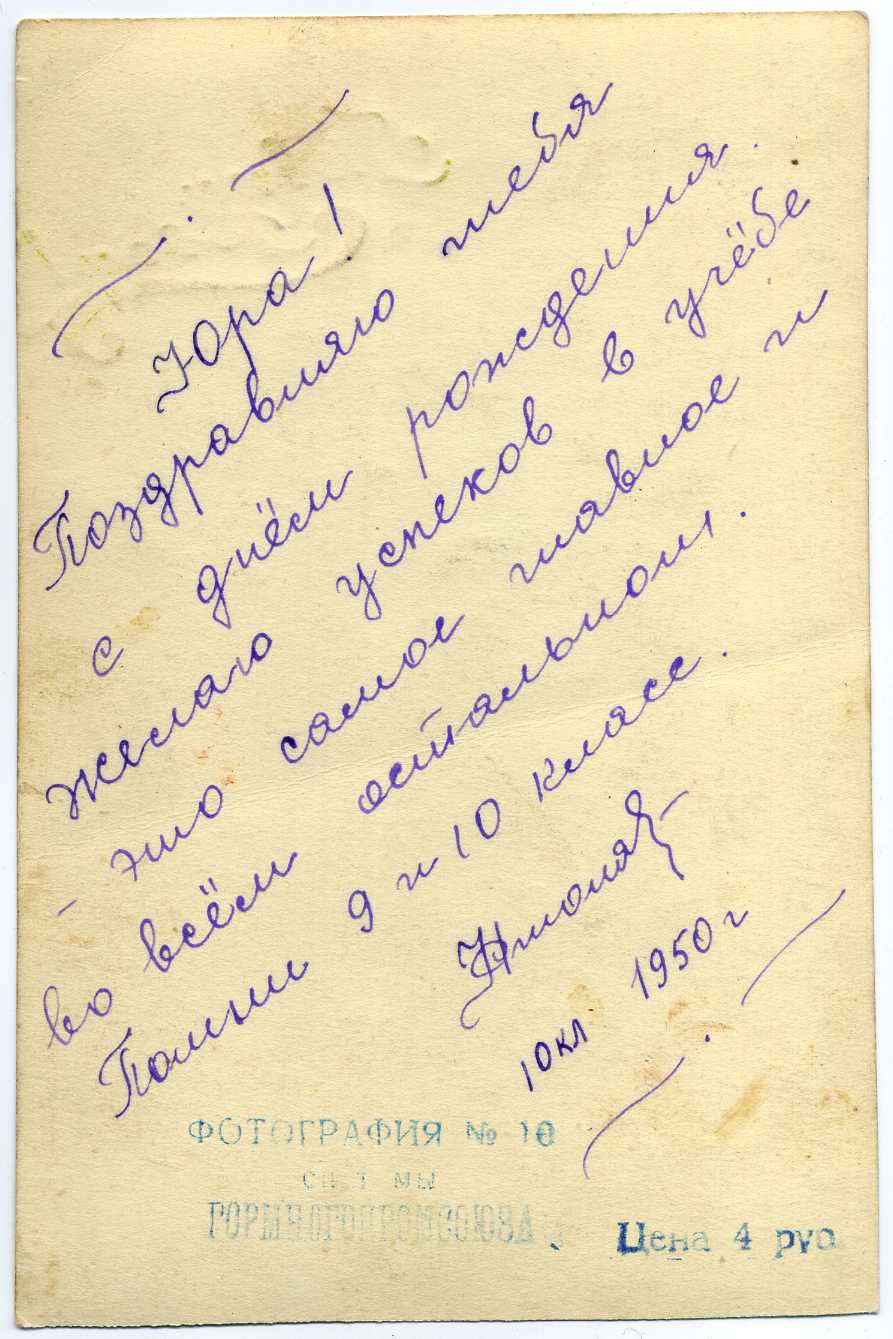 Юра!
Поздравляю тебя
с днём рождения.
желаю успехов в учёбе
- это самое главное и
во всём остальном.
Помни 9 и 10 класс.
10 кл 1950 г
ФОТОГРАФИЯ № 10
ГОРМНОГОПРОМСОЮЗА
Цена 4 руб